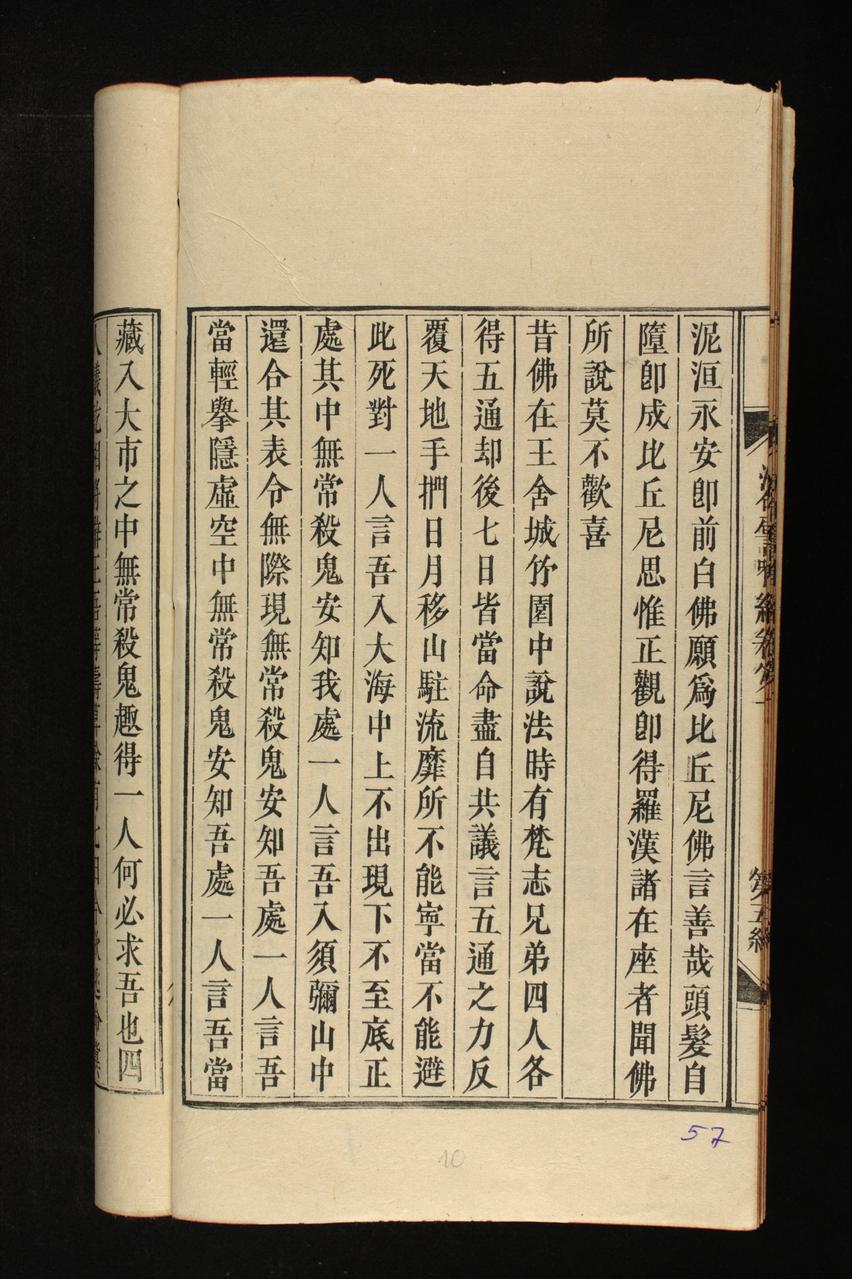 泥洹永安卽前白佛願爲比丘尼佛言善哉頭髮自
墮卽成比丘尼思惟正觀卽得羅漢諸在座者聞佛
所說莫不歡喜
昔佛在王舍城竹園中說法時有梵志兄弟四人各
得五通却後七日皆當命盡自共議言五通之力反
覆天地手捫日月移山駐流靡所不能寧當不能避
此死對一人言吾入大海中上不出現下不至底正
處其中無常殺鬼安知我處一人言吾入須彌山中
還合其表令無際現無常殺鬼安知吾處一人言吾
當輕擧隱虛空中無常殺鬼安知吾處一人言吾當
藏入大市之中無常殺鬼趣得一人何必求吾也四
57
10